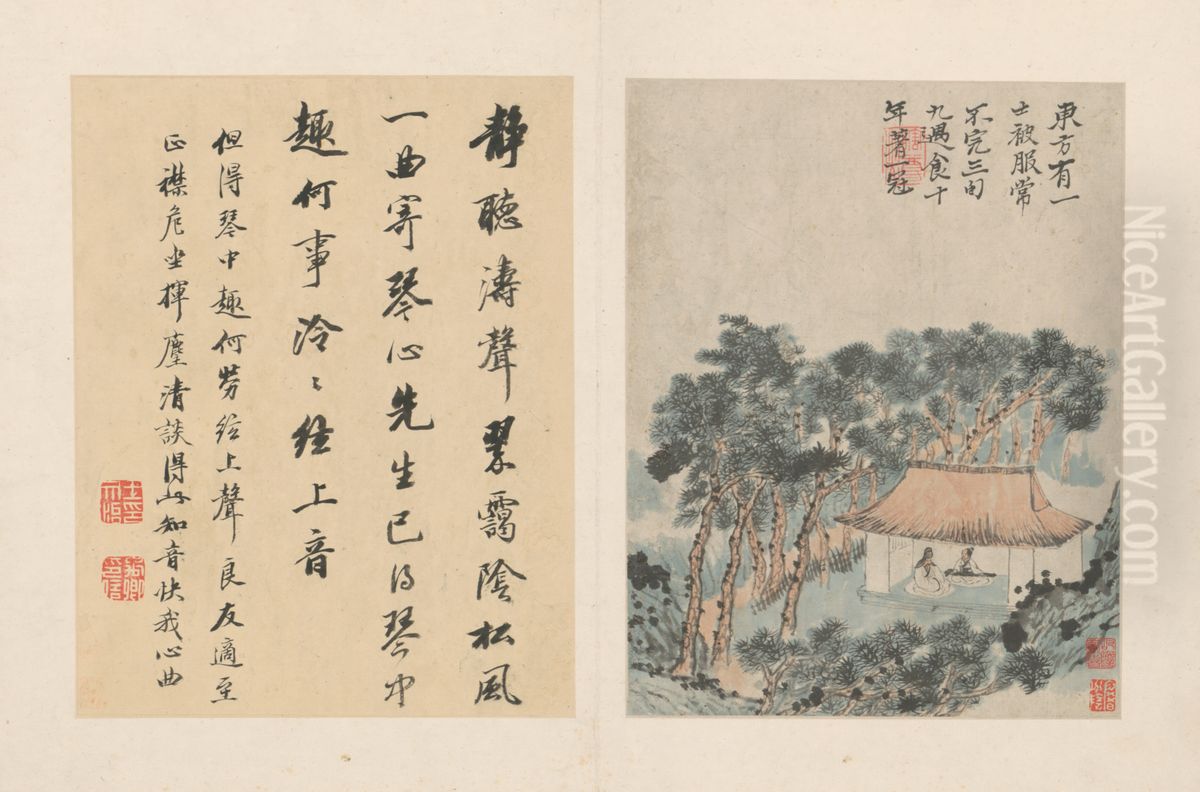 東方有一
士被服常
不完三旬
九遇食十
年著一冠
靜聽濤聲翠靄陰松風
一曲寄琴心先生已得琴中
趣何事泠〻絃上音
但得琴中趣何勞絃上聲良友適至
正襟危坐揮麈清談得此知音快我心曲
NiceArtGallery.com